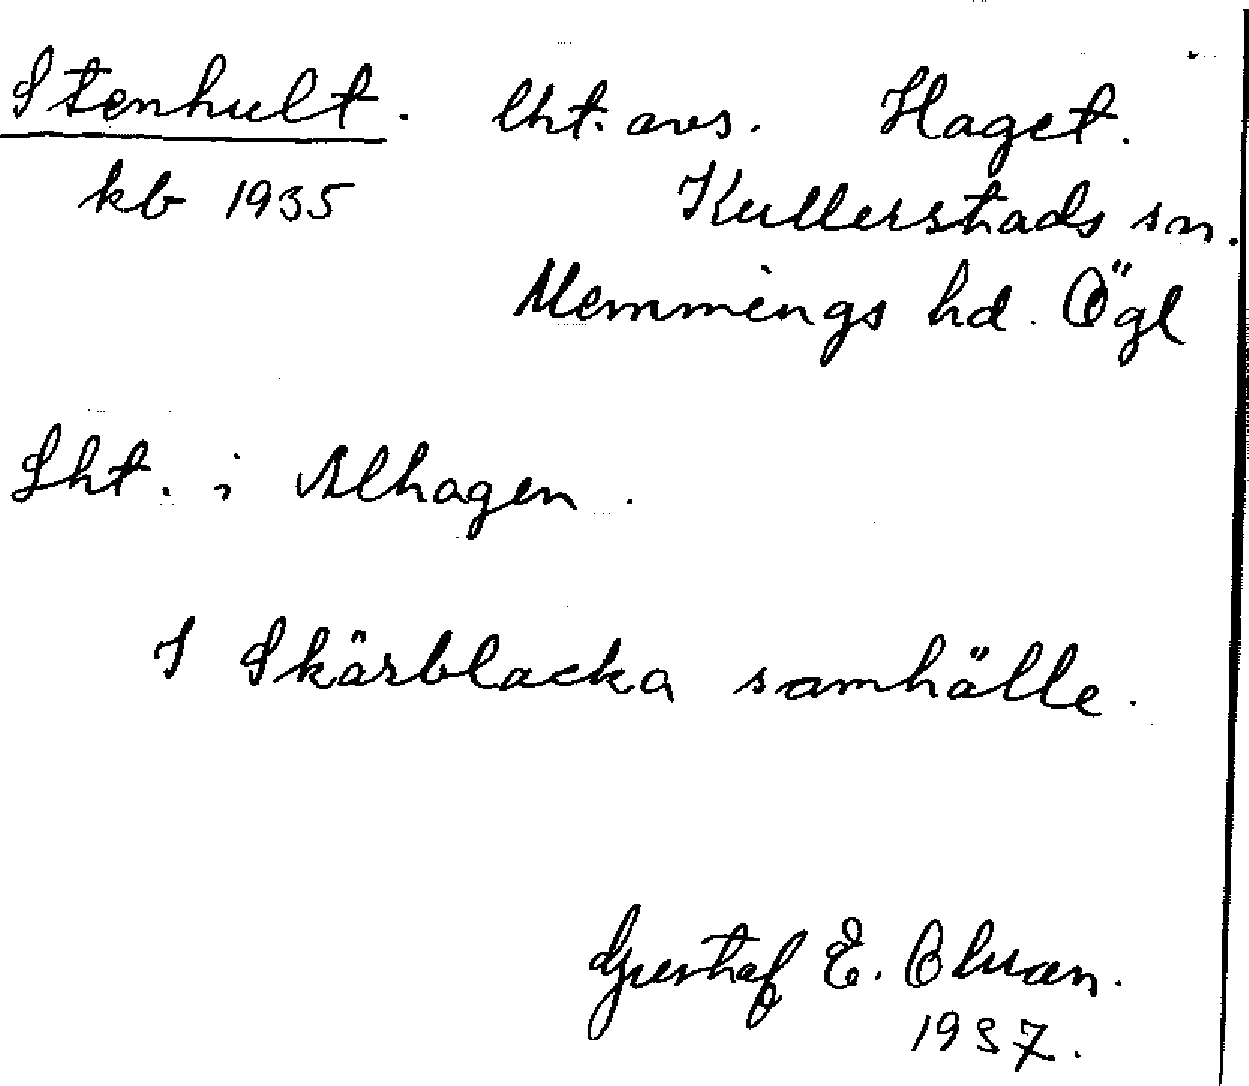 Stenhult. lht. avs. Haget.
kb 1935 Kullerstads sn.
Memmings hd. Ögl
Lht. i Alhagen.
I Skärblacka samhälle.
Gustaf E. Olsson.
1937.